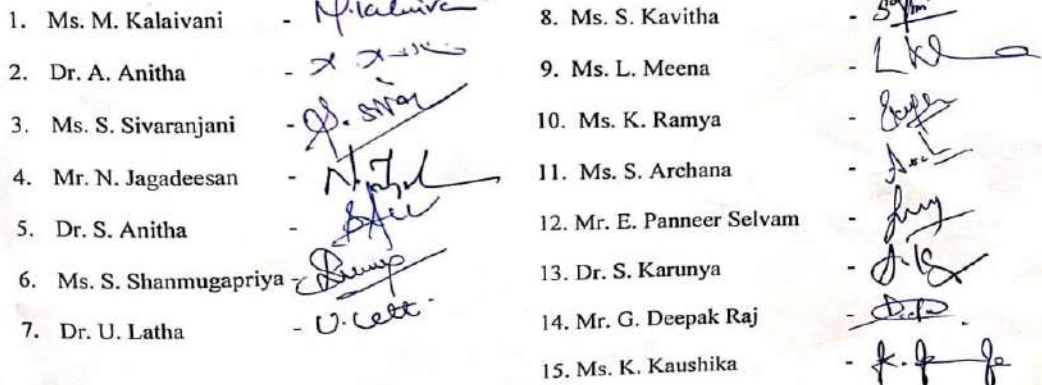 1. Ms. M. Kalaivani -
2. Dr. A. Anitha -
3. Ms. S. Sivaranjani -
4. Mr. N. Jagadeesan -
5. Dr. S. Anitha -
6. Ms. S. Shanmugapriya -
7. Dr. U. Latha -
8. Ms. S. Kavitha -
9. Ms. L. Meena -
10. Ms. K. Ramya -
11. Ms. S. Archana -
12. Mr. E. Panneer Selvam -
13. Dr. S. Karunya -
14. Mr. G. Deepak Raj -
15. Ms. K. Kaushika -